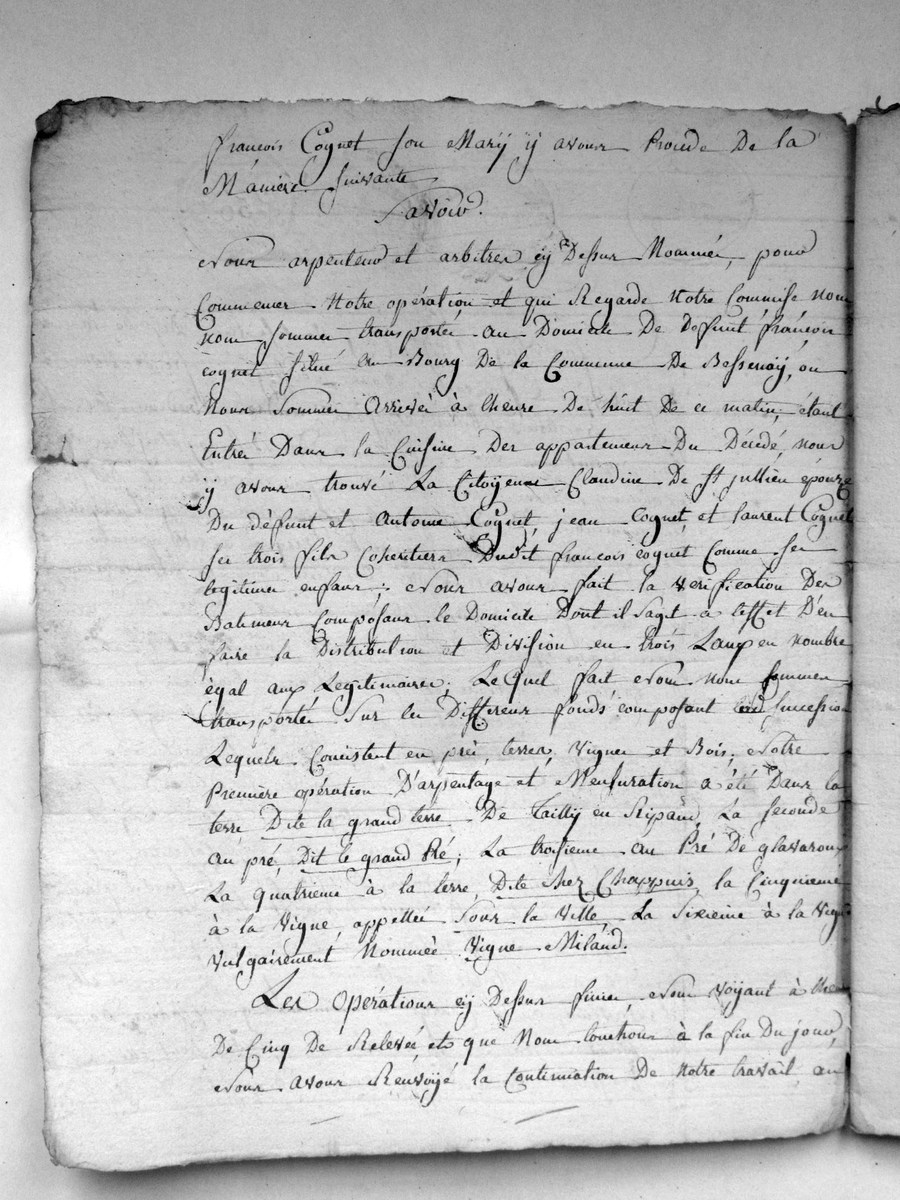 françois Cognet son Mary ÿ avons Procédé De la
Maniere suivante
Savoir.
Nous arpenteur et arbitres cÿ Dessus Nommés, pour
Commencer Notre opération et qui Regarde Notre Commise nous
nous sommes transportés au Domicile De Defunt françois
cognet situé au Bourg De la Commune De Bessenaÿ, ou
Nous Sommes Arrivés à lheure De huit De ce matin, étant
Entrés Dans la Cuisine Des appartemens Du Décédé, nous
ÿ avons trouvé La Citoyenne Claudine De St jullien épouze
Du défunt et Antoine Cognet, jean Cognet, et laurent Cognet
ses trois fils Coheritiers Dudit françois cognet Comme ses
légitimes enfans; Nous avons fait la vérification Des
Batimens Composans le Domicile Dont il Sagit a leffet D'en
faire la Distribution et Division en trois Laux en nombre
égal aux Legitimaires; Lequel fait Nous nous sommes
transportés sur les Differens fonds composant succession
Lequels Consistent en prés, terres, Vignes et Bois, Notre
Première opération D'arpentage et Mensuration a été Dans la
terre Dite la grand terre De Tailly en Ripand, La seconde
au pré, Dit le grand Pré; La troisieme au Pré De glavaroux
La quatrieme à la terre Dite Chez Chappuis, la Cinquieme
à la Vigne, appellée Sous la Ville, La Sixieme à la Vigne
Vulgairement Nommée Vigne Miland.
Les Opérations cÿ Dessus finies, Nous Voyant à lheure
De Cinq De Relevée, et que Nous touchons à la fin Du jour,
Nous avons Renvoÿé la Continuation De Notre travail au